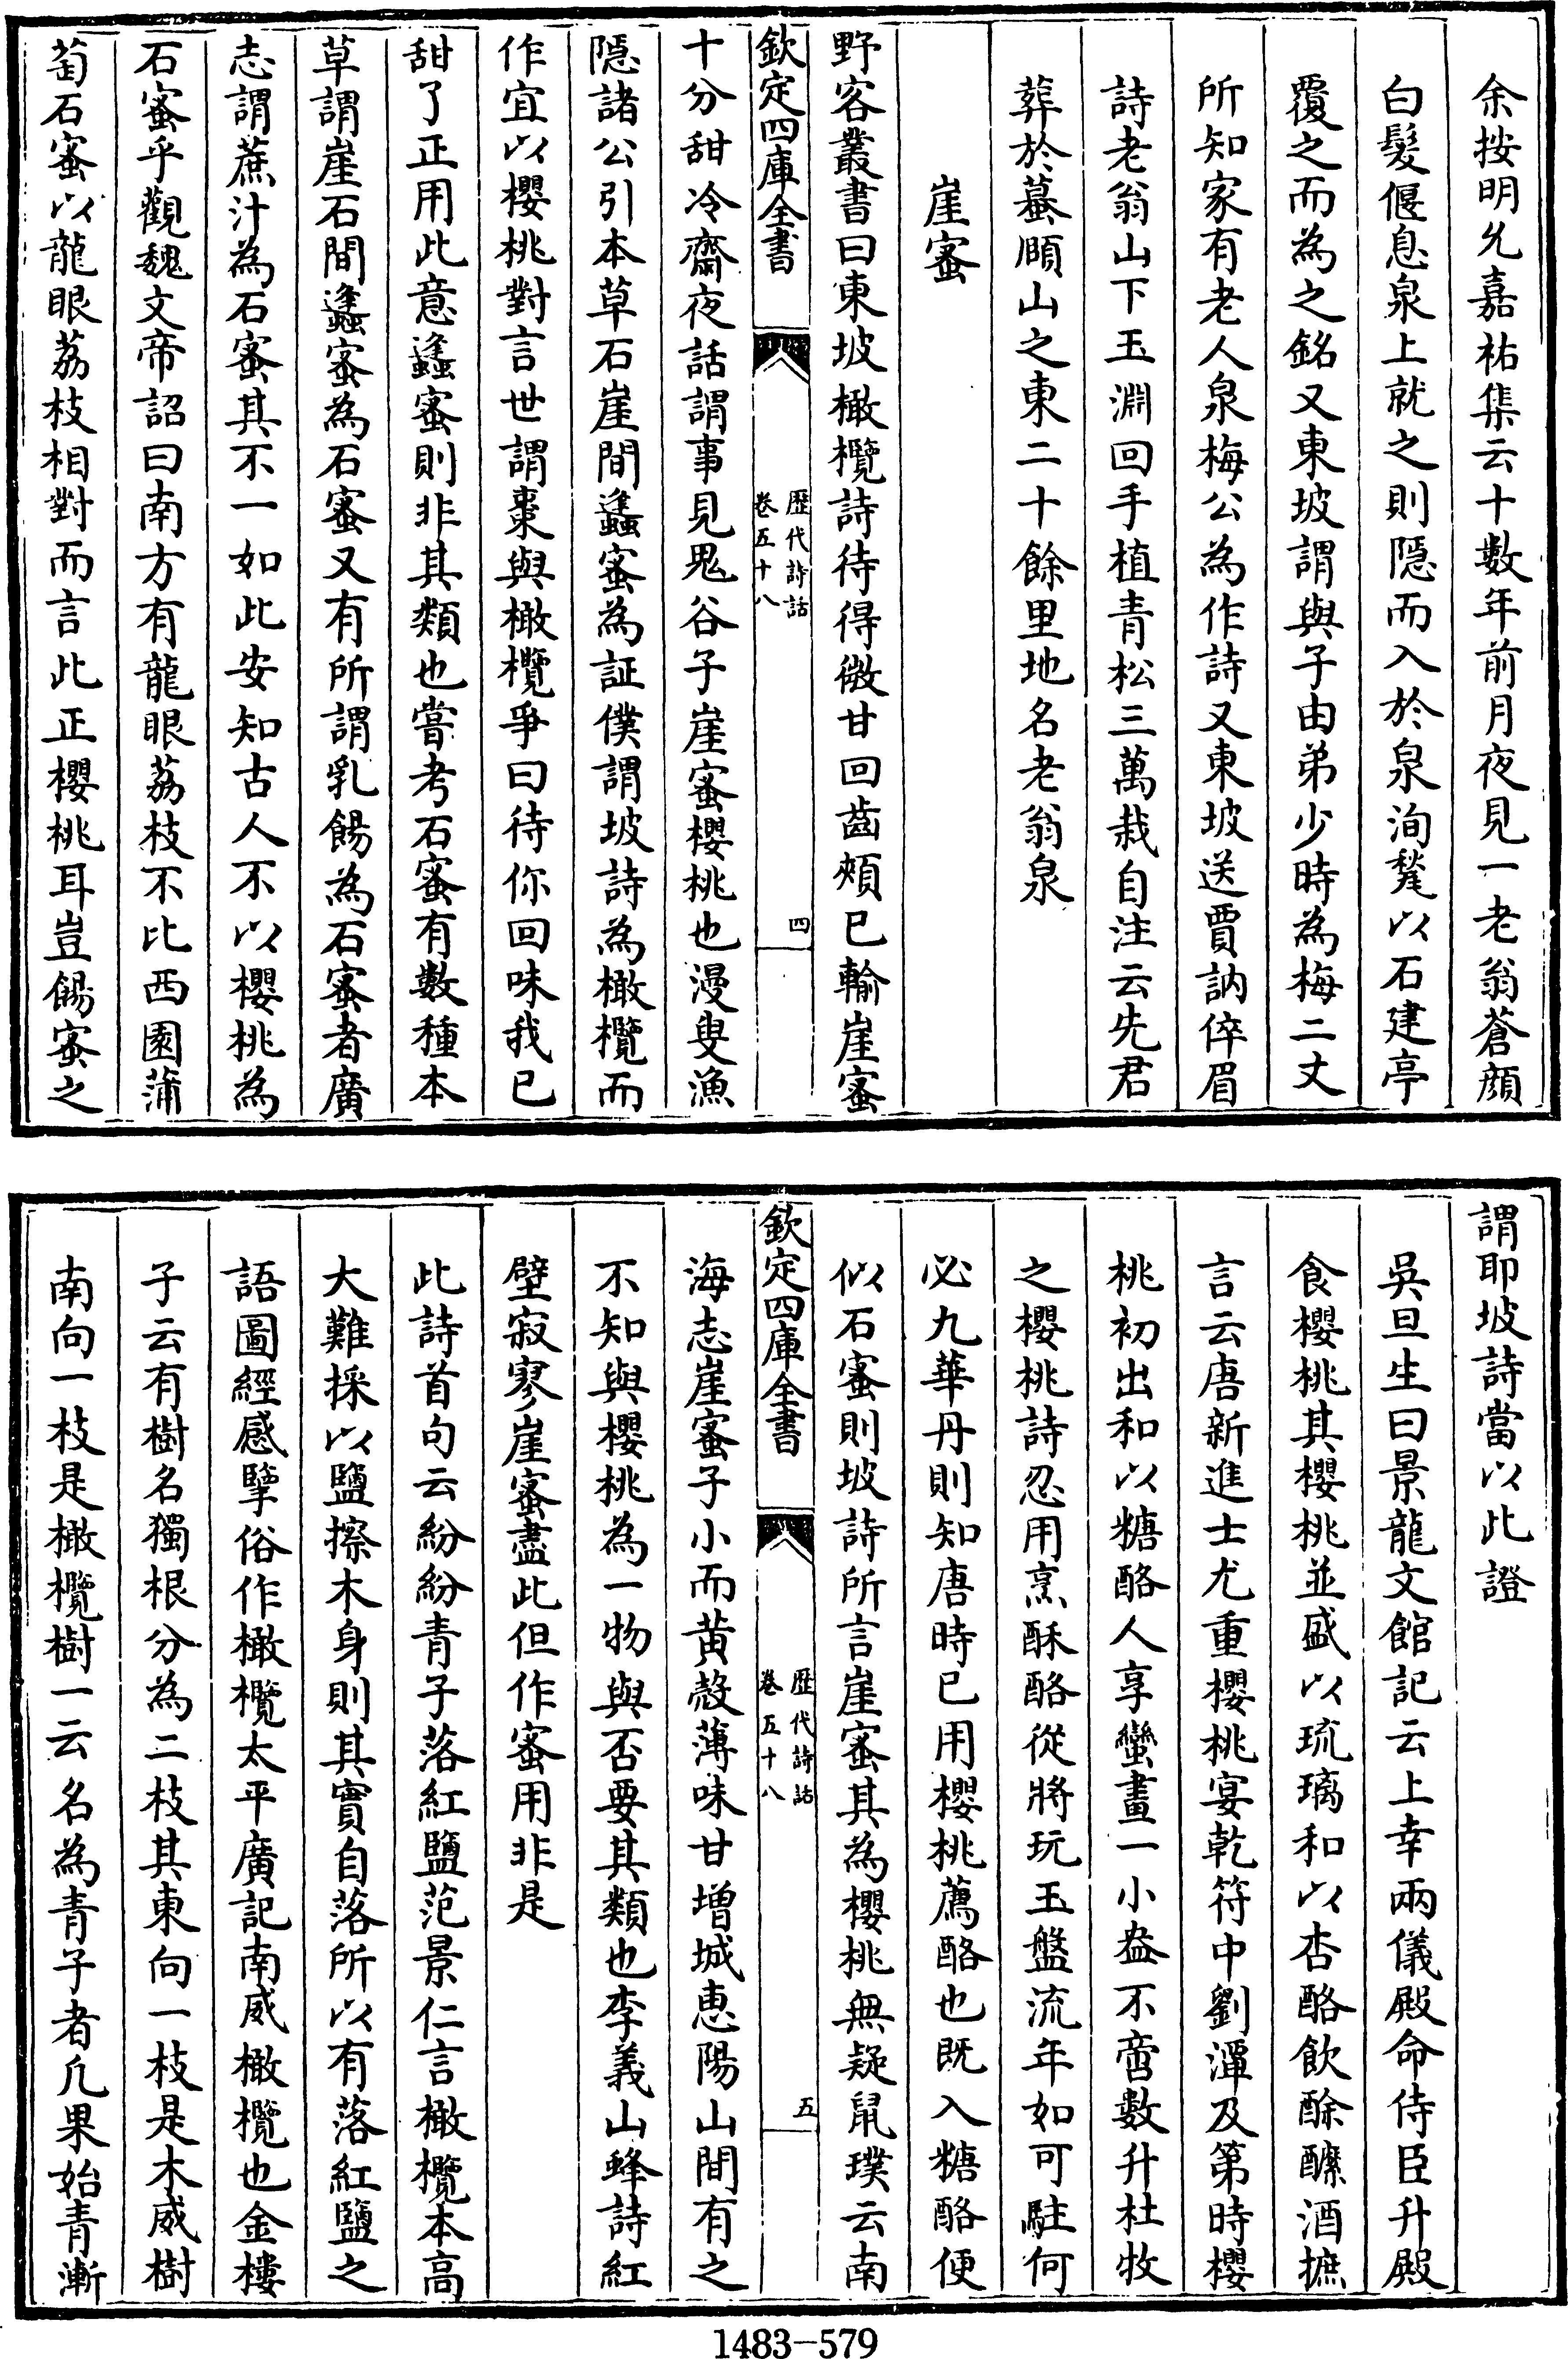 余按明允嘉祐集云十數年前月夜見一老翁蒼顔
白髮偃息泉上就之則隠而入於泉洵甃以石建亭
覆之而為之銘又東坡謂與子由弟少時為梅二丈
所知家有老人泉梅公為作詩又東坡送賈訥倅眉
詩老翁山下玉淵回手植青松三萬栽自注云先君
葬於蟇頥山之東二十餘里地名老翁泉
崖蜜
野客叢書曰東坡橄欖詩待得微甘回齒頰已輸崖蜜
欽定四庫全書
歴代詩話
卷五十八
四
十分甜冷齋夜話謂事見鬼谷子崖蜜櫻桃也漫叟漁
隠諸公引本草石崖間蠭蜜為証僕謂坡詩為橄欖而
作宜以櫻桃對言世謂棗與橄欖爭曰待你回味我已
甜了正用此意蠭蜜則非其類也嘗考石蜜有數種本
草謂崖石間蠭蜜為石蜜又有所謂乳餳為石蜜者廣
志謂蔗汁為石蜜其不一如此安知古人不以櫻桃為
石蜜乎觀魏文帝詔曰南方有龍眼荔枝不比西園蒲
萄石蜜以龍眼荔枝相對而言此正櫻桃耳豈餳蜜之
謂耶坡詩當以此證
吳旦生曰景龍文館記云上幸兩儀殿命侍臣升殿
食櫻桃其櫻桃並盛以琉璃和以杏酪飲酴醿酒摭
言云唐新進士尤重櫻桃宴乾符中劉潭及第時櫻
桃初出和以糖酪人享蠻畫一小盎不啻數升杜牧
之櫻桃詩忍用烹酥酪從將玩玉盤流年如可駐何
必九華丹則知唐時已用櫻桃薦酪也既入糖酪便
似石蜜則坡詩所言崖蜜其為櫻桃無疑鼠璞云南
欽定四庫全書
歴代詩話
卷五十八
五
海志崖蜜子小而黄殼薄味甘增城惠陽山間有之
不知與櫻桃為一物與否要其類也李義山蜂詩紅
壁寂寥崖蜜盡此但作蜜用非是
此詩首句云紛紛青子落紅鹽范景仁言橄欖本高
大難採以鹽擦木身則其實自落所以有落紅鹽之
語圖經感擥俗作橄欖太平廣記南威橄欖也金樓
子云有樹名獨根分為二枝其東向一枝是木威樹
南向一枝是橄欖樹一云名為青子者凢果始青漸
1483-579